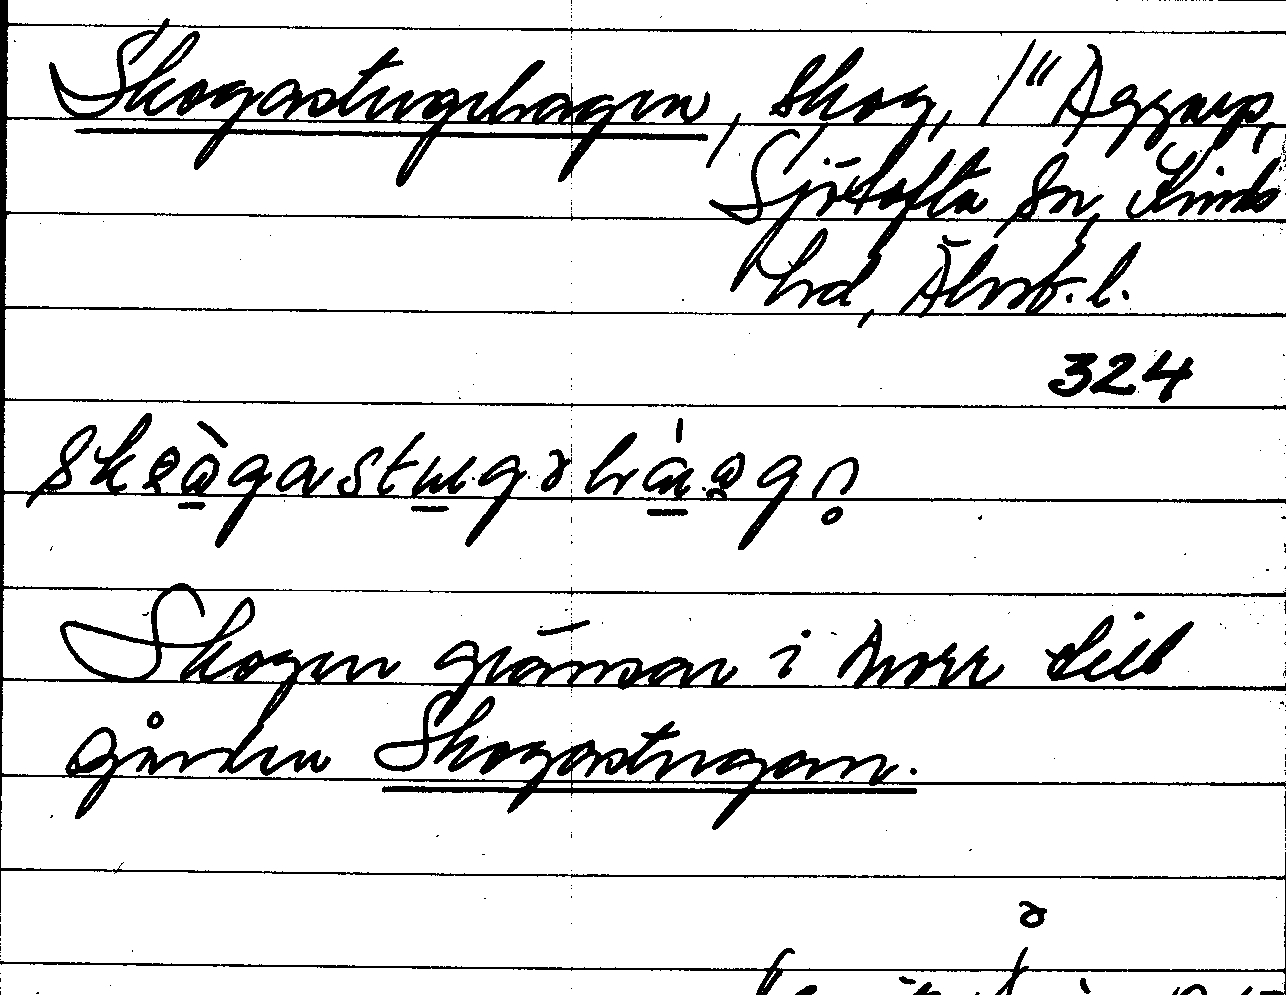 Skogastugehagen, skog, 1" Aggarp,
Sjötofta sn, Kinds
hd, Älvsb. l.
324
Skogen gränsar i norr till
gården Skogastugan.